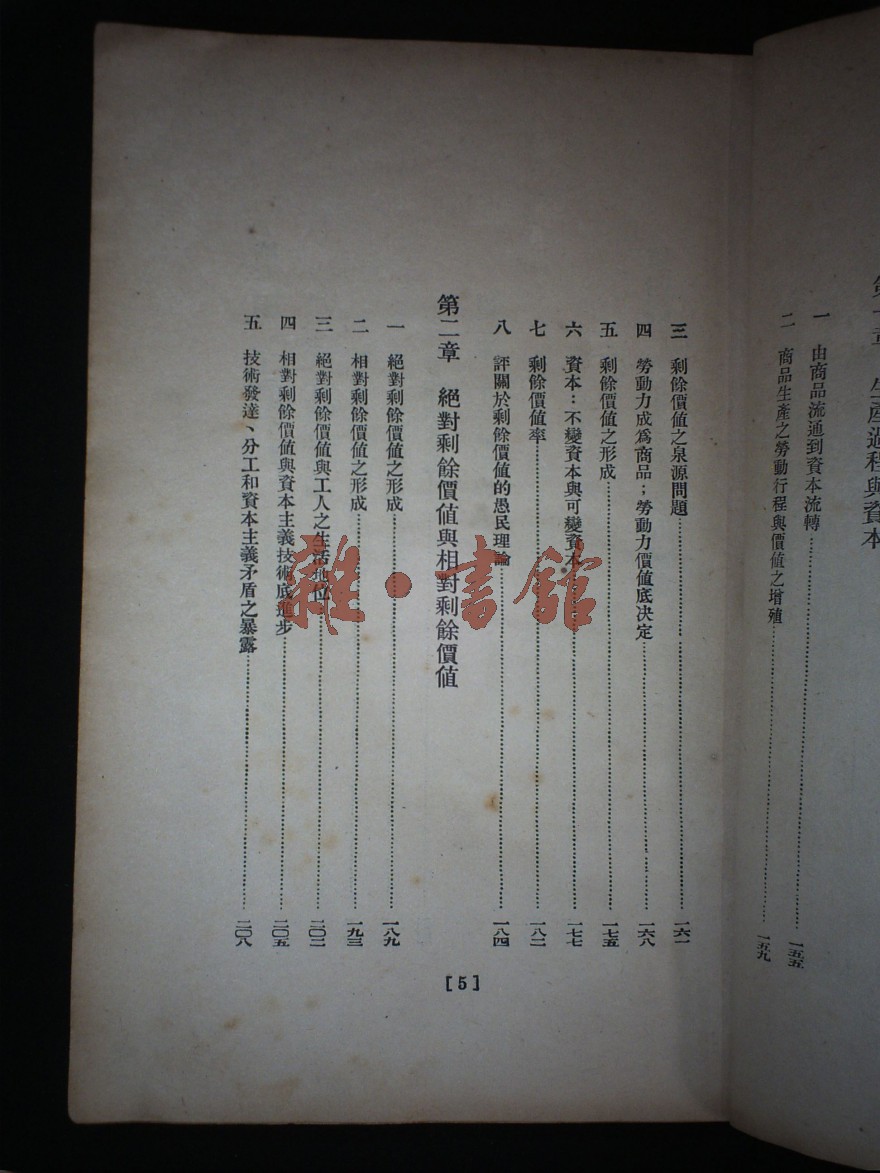 生產過程與資本
一　由商品流通到資本流轉……一五五
二　商品生產之勞動行程與價值之增殖……一五九
三　剩餘價值之泉源問題……一六一
四　勞動力成爲商品；勞動力價値底决定……一六八
五　剩餘價値之形成……一七五
六　資本：不變資本與可變資本……一七七
七　剩餘價値率……一八二
八　評關於剩餘價値的愚民理論……一八四
第二章　絕對剩餘價値與相對剩餘價値
一　絕對剩餘價値之形成……一八九
二　相對剩餘價値之形成……一九三
三　絕對剩餘價値與工人之生活地位……二〇二
四　相對剩餘價値與資本主義技術底進步……二〇五
五　技術發達、分工和資本主義矛盾之暴露……二〇八
[5]
雜·書館